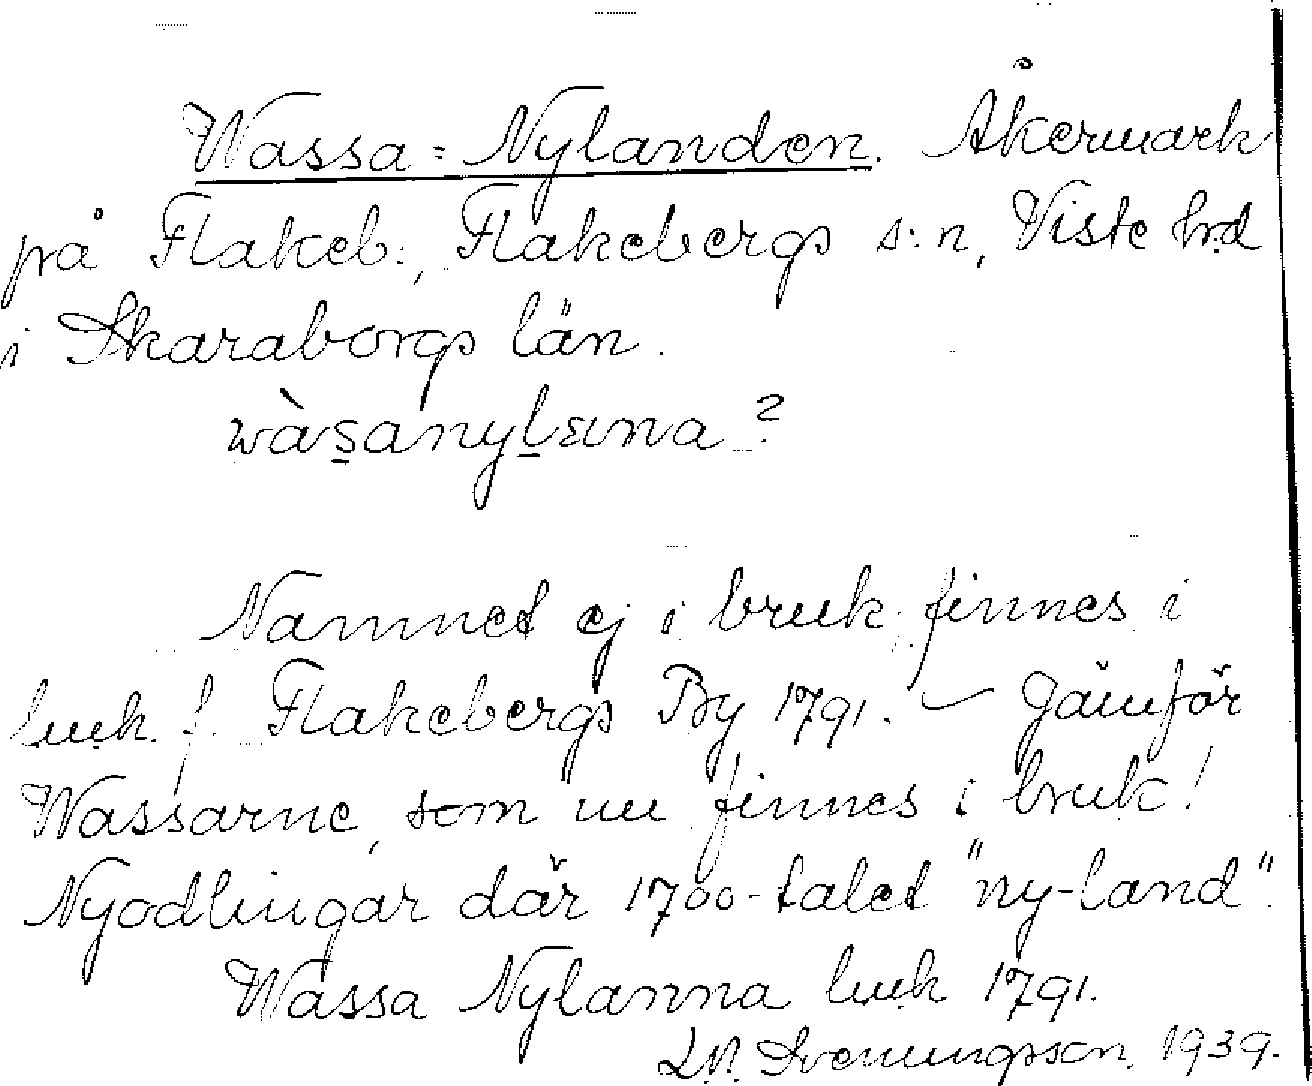 Wassa-Nylanden. Åkermark
på Flakeb:, Flakebergs s:n, Viste hrd
i Skaraborgs län.
wàsanylanna?
Namnet ej i bruk; finnes i
lmk. f. Flakebergs By 1791. – Jämför
Wassarne, som nu finnes i bruk!
Nyodlingar där 1700-talet "ny-land".
Wassa Nylanna lmk 1791.
Svenungsson, 1939.